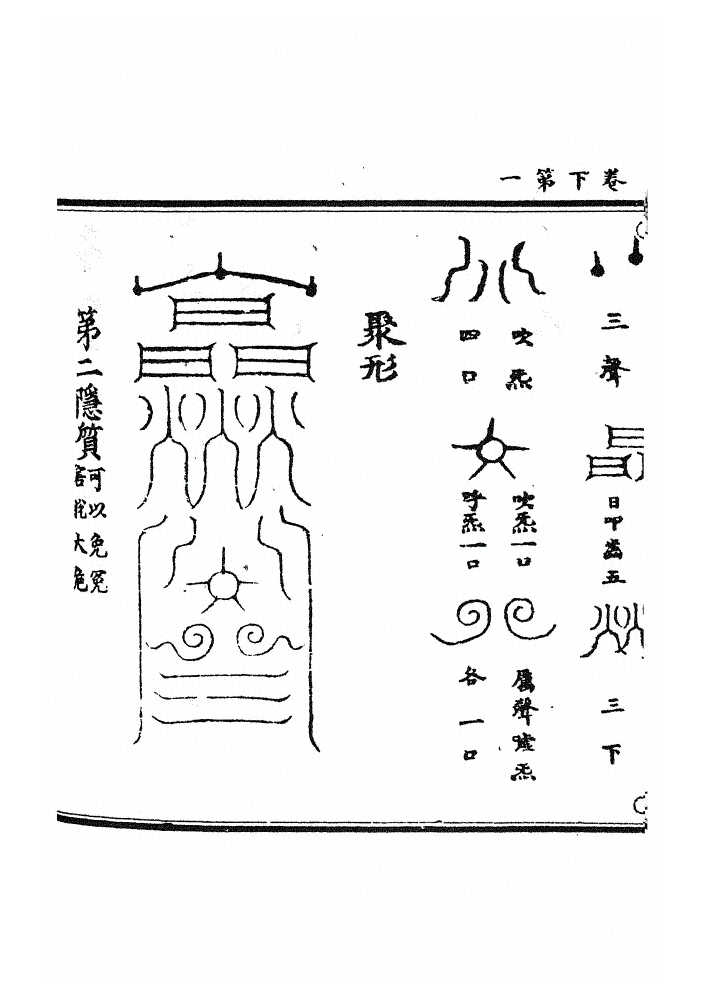 卷下第一
三聲
日叩齒五
三下
吹炁
四口
吹炁一口
呼炁一口
厲聲噓炁
各一口
聚形
第二隱質
可以免冤
害
大危